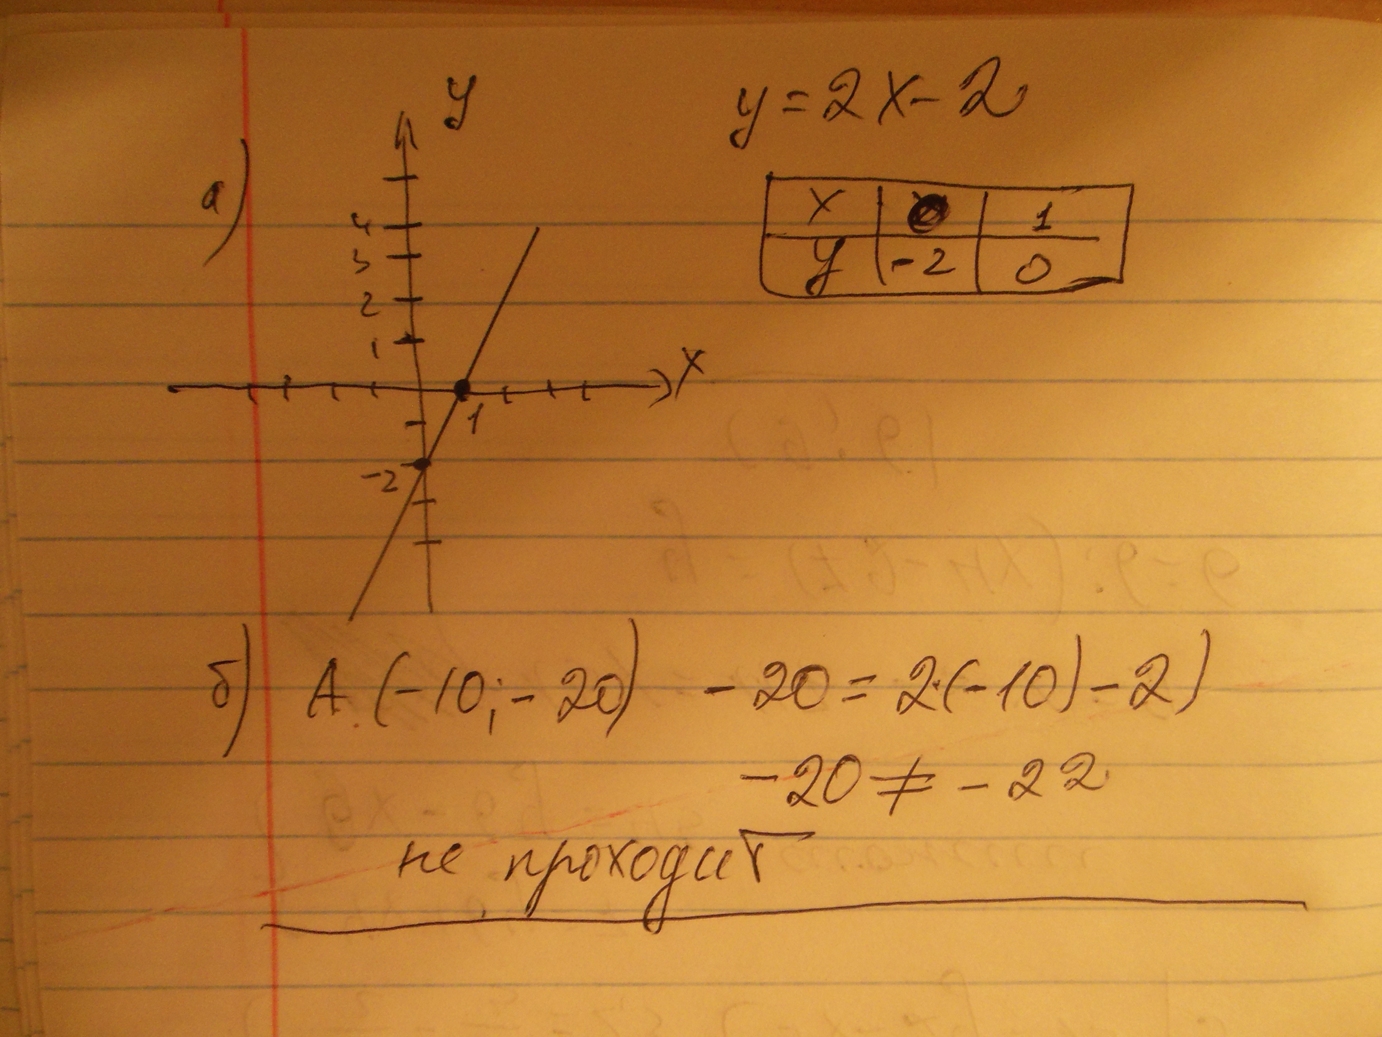 y
y = 2x - 2
а)
x 0 1
y -2 0
4
3
2
1
x
1
-2
б) A (-10; -20) -20 = 2·(-10) - 2)
-20 ≠ -22
не проходит